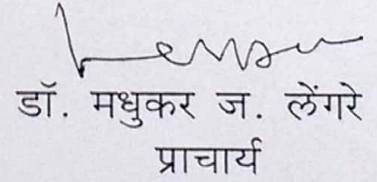 डॉ. मधुकर ज. लेंगरे
प्राचार्य